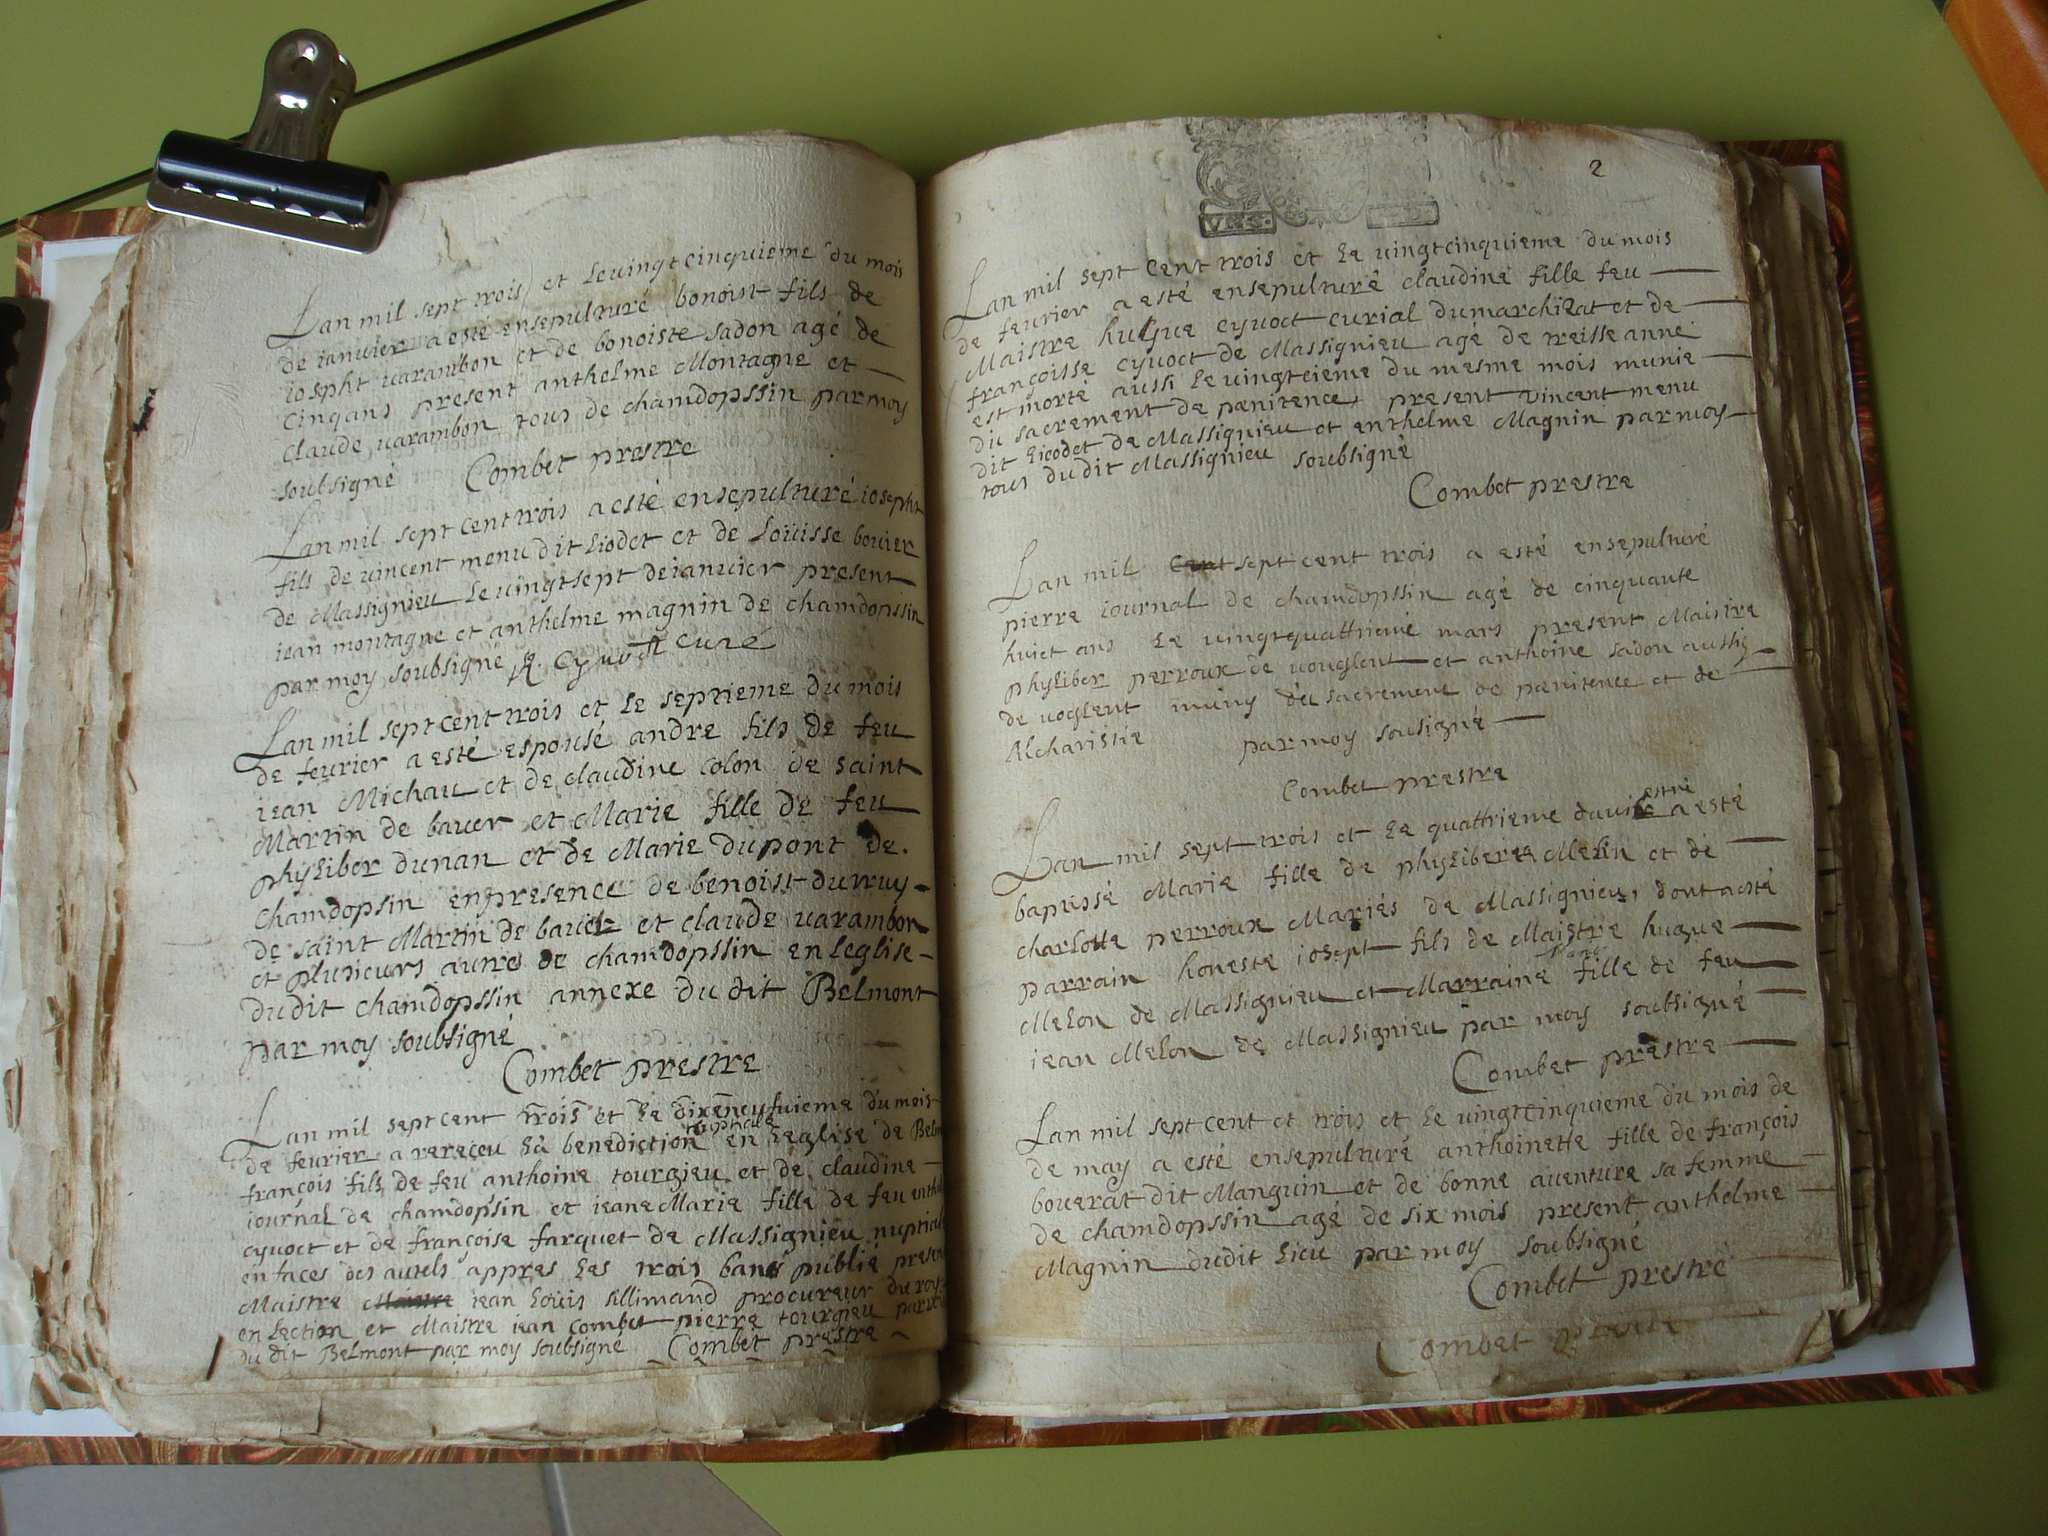 Lan mil sept trois et le vingt cinquieme du mois
de ianuier a esté ensepulturé benoist fils de
iosepht varambon et de benoiste sadon agé de
cinq ans present anthelme Montagne et
claude varambon tous de chamdopssin par moy
soubsigné Combet prestre
Lan mil sept cent trois a esté ensepulturé iosepht
fils de vincent menu dit liodet et de Loüisse bouier
de Massignieu le vingt sept de ianuier present
iean montagne et anthelme magnin de chamdopssin
par moy soubsigné curé
Lan mil sept cent trois et le septieme du mois
de feurier a esté espousé andre fils de feu
iean Michau et de claudine colon de saint
Martin de bauer et Marie fille de feu
phyliber dunan et de Marie dupont de
chamdopsin en presence de benoist
de saint Martin de bauel et claude varambon
et plusieurs autres de chamdopssin en leglise
dudit chamdopssin annexe du dit Belmont
par moy soubsigné
Combet prestre
Lan mil sept cent trois et le dixeneufuieme du mois
de feurier a rereçeu la benediction nuptiale en leglise de Belm
françois fils de feu anthoine tourgieu et de claudine
iournal de chamdopsin et ieane Marie fille de feu enthel
cyuoct et de françoise farquet de Massignieu nuptial
en faces des autels appres les trois bans publié presen
Maistre iean Loüis sillimand procureur du roy
en lection et Maistre iean combet pierre tourgieu
du dit Belmont par moy soubsigné Combet prestre
2
Lan mil sept cent trois et le vingtcinquieme du mois
de feurier a esté ensepulturé claudine fille feu
Maistre hugue cyuoct curial dumarchizat et de
françoisse cyuoct de Massignieu agé de treisse anne
est morte aussi le vingtcieme du mesme mois munie
du sacrement de pænitence present vincent menu
dit liodet de Massignieu et enthelme Magnin par moy
tous dudit Massignieu soubsigné
Combet prestre
Lan mil cent sept cent trois a esté ensepulturé
pierre iournal de chamdopssin agé de cinquante
huict ans le vingtquattrieme mars present Maistre
phyliber perroux de uouglent et anthoine sadon aussy
de uoglent muny du sacrement de pænitence et de
Alcharistie par moy sousigné
Combet prestre
Lan mil sept trois et le quattrieme dauil estre a esté
baptissé Marie fille de phylibert Melin et de
charlotte perroux Mariés de Massignieu, dont a esté
parrain honeste iosept fils de Maistre hugue
Melon de Massignieu et Marraine fille de feu
iean Melon de Massignieu par moy soubsigné
Combet prestre
Lan mil sept cent et trois et le vingtcinquieme du mois de
de may a esté ensepulturé anthoinette fille de françois
bouerat dit Manguin et de bonne auenture sa femme
de chamdopssin agé de six mois present anthelme
Magnin dudit lieu par moy soubsigné
Combet prestre
Combet prestre